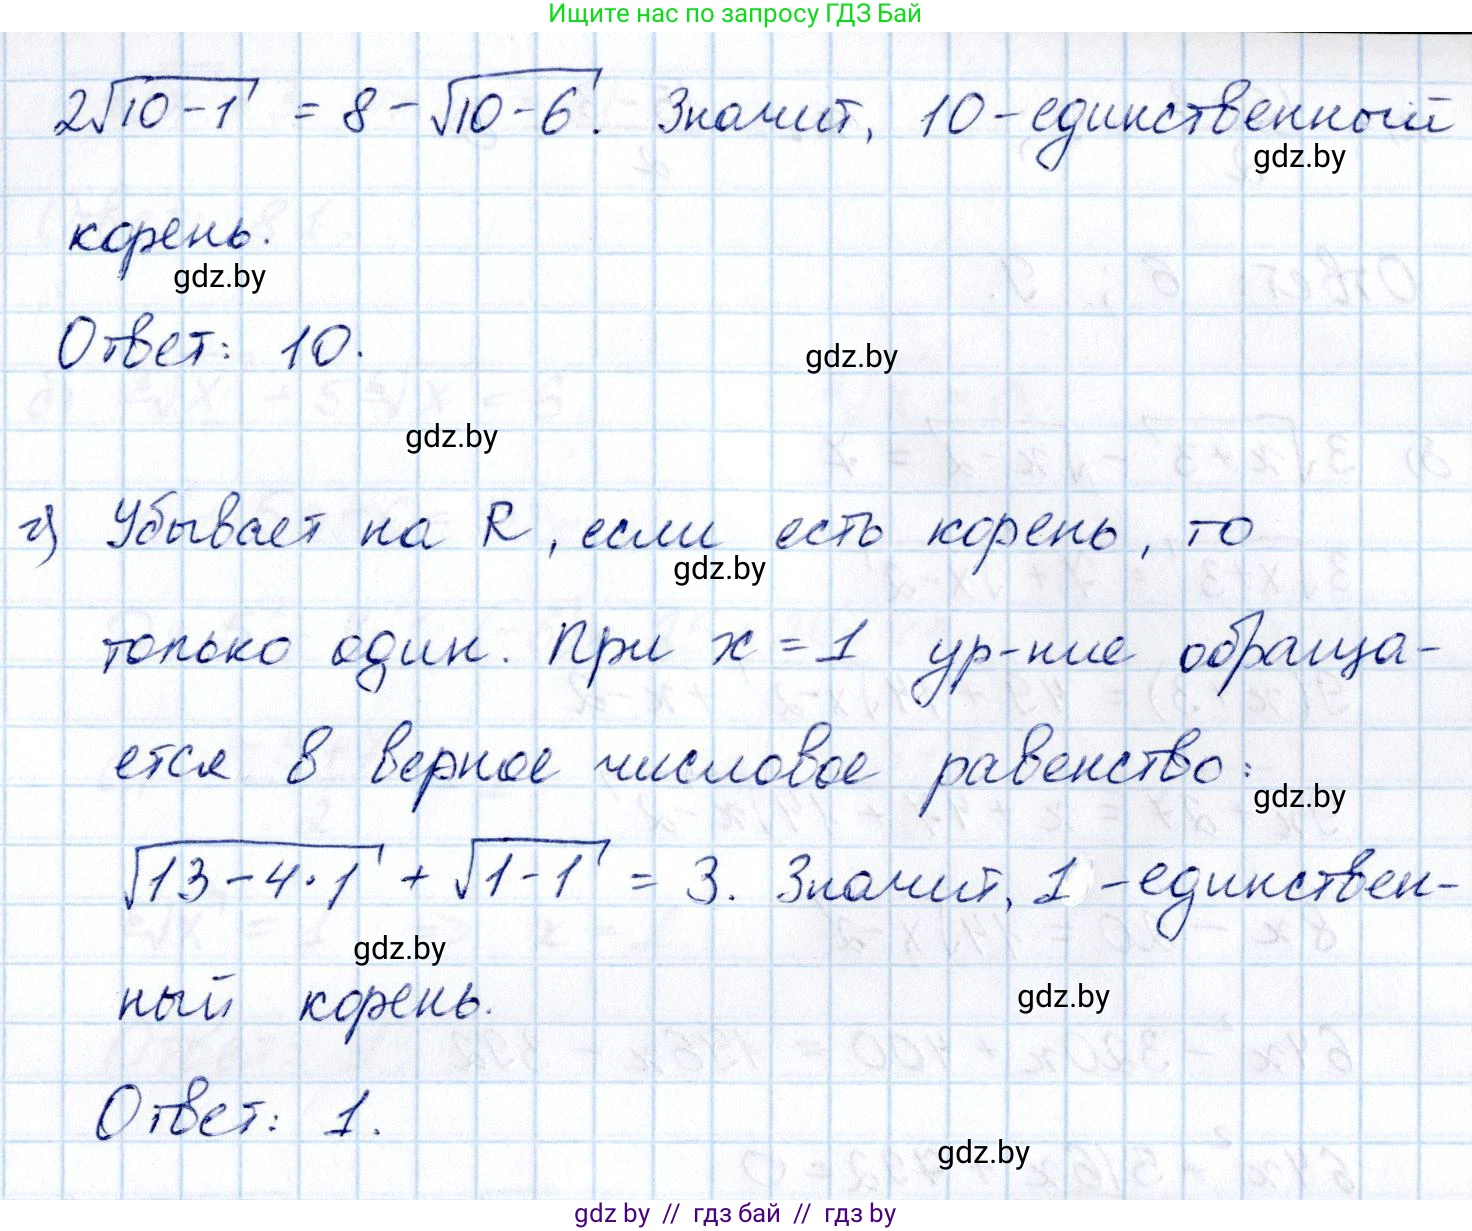 Ищите нас по запросу ГДЗ Бай
2√10-1 = 8 - √10-6. Значит, 10 - единственный
gdz.by
корень.
gdz.by
Ответ: 10.
gdz.by
gdz.by
г) Убывает на R, если есть корень, то
gdz.by
только один. При x = 1 ур-ние обраща-
ется в верное числовое равенство:
gdz.by
√13-4·1 + √1-1 = 3. Значит, 1 - единствен-
gdz.by
ный корень.
gdz.by
Ответ: 1.
gdz.by
gdz by // гдз бай // гдз by